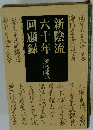 新陰流
六十年
回顧録